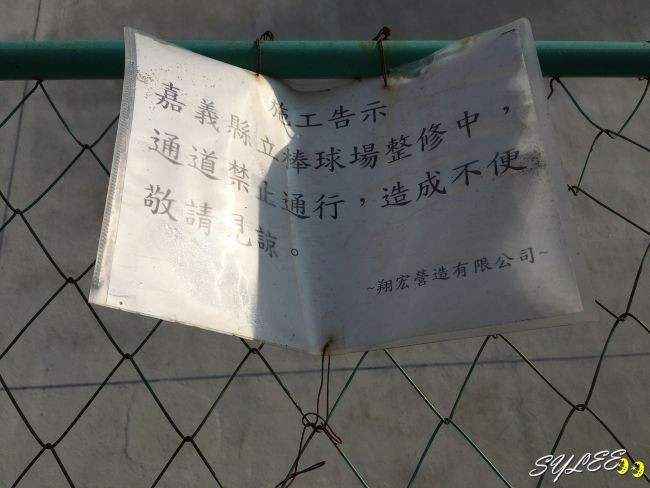 施工告示
嘉義縣立棒球場整修中，
通道禁止通行，造成不便
敬請見諒。
~翔宏營造有限公司~
SYLEE